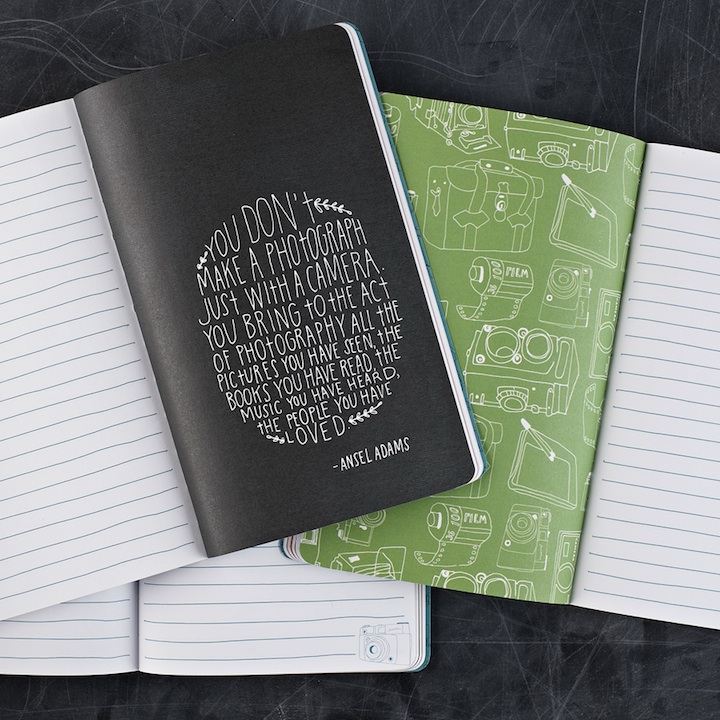 YOU DON't
MAKE A PHOtOGRAPH
JUSt WItH A CAMERA.
YOU BRING tO tHE ACt
OF PHOtOGRAPHY ALL tHE
PICtURES YOU HAVE SEEN, tHE
BOOKS YOU HAVE READ, tHE
MUSIC YOU HAVE HEARD,
tHE PEOPLE YOU HAVE
LOVED
-ANSEL ADAMS
100
FILM
100
FILM